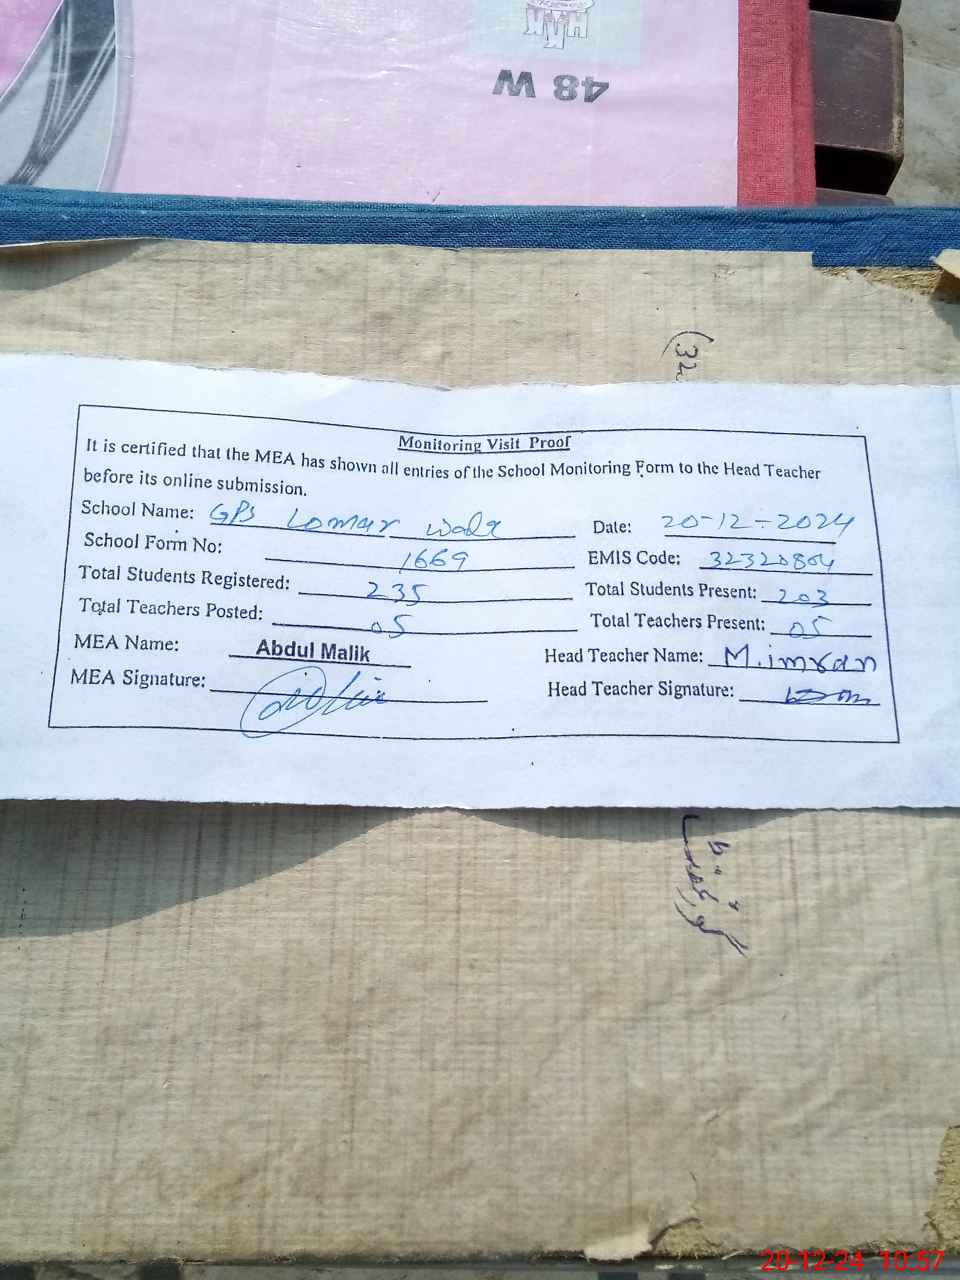 48 W
(32
Monitoring Visit Proof
It is certified that the MEA has shown all entries of the School Monitoring Form to the Head Teacher
before its online submission.
School Name: GPS Lomar wala Date: 20-12-2024
School Form No: 1669 EMIS Code: 32320804
Total Students Registered: 235 Total Students Present: 203
Total Teachers Posted: 05 Total Teachers Present: 05
MEA Name: Abdul Malik Head Teacher Name: M.imran
MEA Signature: Head Teacher Signature:
20-12-24 10:57